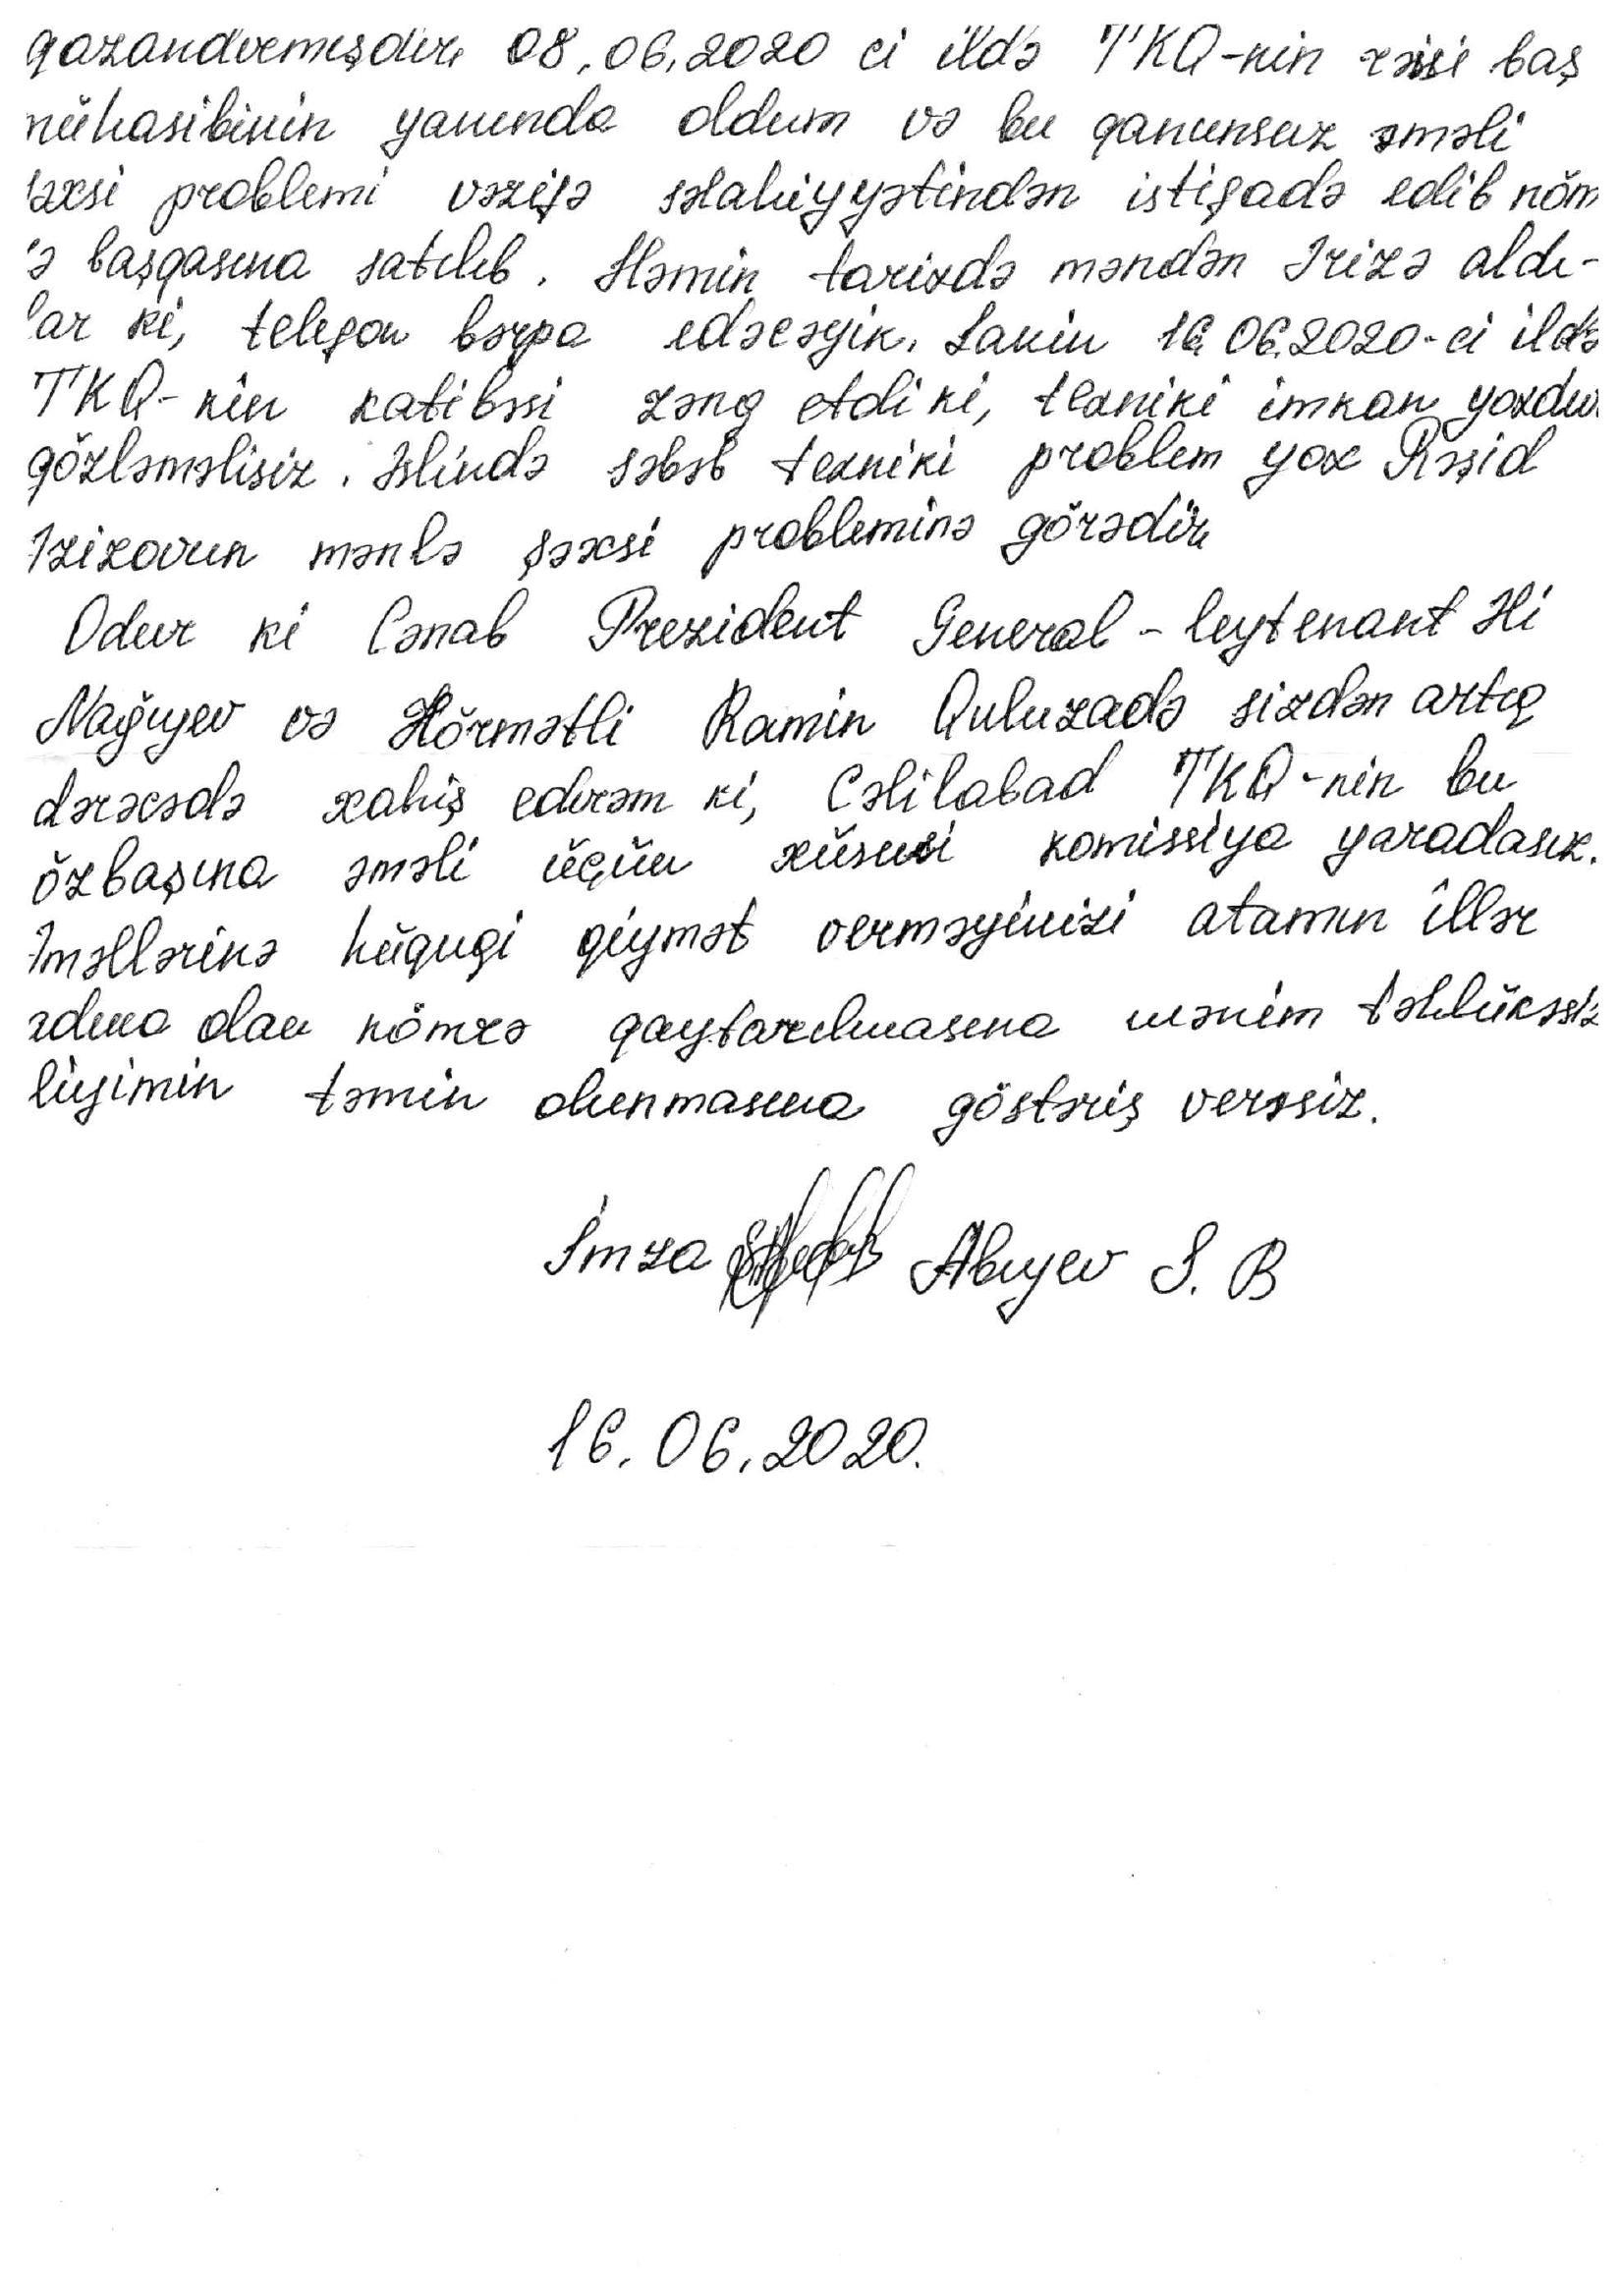 qazandırmışdır. 08.06.2020 ci ildə TKQ-nin rəisi baş
mühasibinin yanında oldum və bu qanunsuz əməli
şəxsi problemi vəzifə səlahiyyətindən istifadə edib nöm
ə başqasına satılıb. Həmin tarixdə məndən Ərizə aldı-
lar ki, telefon bərpa edəcəyik. Lakin 16.06.2020-ci ildə
TKQ-nin katibəsi zəng etdi ki, texniki imkan yoxdur
gözləməlisiz. Əslində səbəb texniki problem yox Rəşid
Əzizovun mənlə şəxsi probleminə görədir.
Odur ki Cənab Prezident General-leytenant Əli
Nağıyev və Hörmətli Ramin Quluzadə sizdən artıq
dərəcədə xahiş edirəm ki, Cəlilabad TKQ-nin bu
özbaşına əməli üçün xüsusi komissiya yaradasız.
Əməllərinə hüquqi qiymət verməyinizi atamın illər
adına olan nömrə qaytarılmasına mənim təhlükəsiz
liyimin təmin olunmasına göstəriş verəsiz.
İmza Abıyev S. B
16.06.2020.